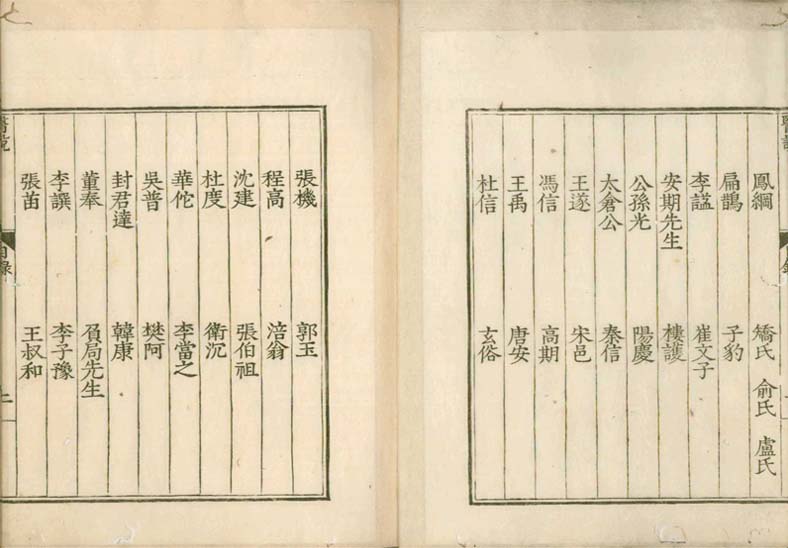 鳳綱 矯氏 俞氏 盧氏
扁鵲 子豹
李謐 崔文子
安期先生 樓護
公孫光 陽慶
太倉公 秦信
王遂 宋邑
馮信 高期
王禹 唐安
杜信 玄俗
張機 郭玉
程高 涪翁
沈建 張伯祖
杜度 衛沉
華佗 李當之
吳普 樊阿
封君達 韓康
董奉 負局先生
李譔 李子豫
張苗 王叔和
醫說 目錄 上